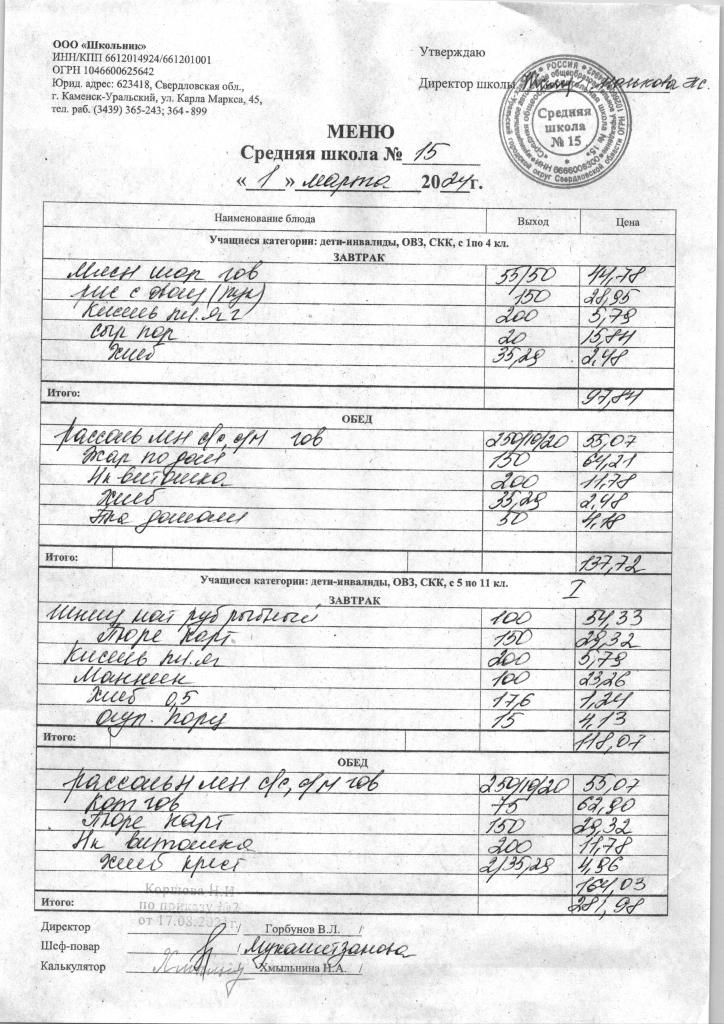 ООО «Школьник»
ИНН/КПП 6612014924/661201001
ОГРН 1046600625642
Юрид. адрес: 623418, Свердловская обл.,
г. Каменск-Уральский, ул. Карла Маркса, 45,
тел. раб. (3439) 365-243; 364 - 899
Утверждаю
Директор школы
РОССИЯ
Средняя
школа
№ 15
МЕНЮ
Средняя школа № 15
« 1 » марта 2024г.
Наименование блюда Выход Цена
Учащиеся категории: дети-инвалиды, ОВЗ, СКК, с 1по 4 кл.
ЗАВТРАК
Мясн шар гов 55/50 44,78
рис с овощ (пук) 150 28,95
Кисель пл. яг 200 5,79
Сыр пор 20 15,84
Хлеб 35,29 2,48
Итого: 97,84
ОБЕД
Рассольн лен с/с, с/м гов 250/10/20 55,07
Жар по дом 150 64,21
Нк витошка 200 11,78
Хлеб 35,29 2,48
Икра домаш 50 4,18
Итого: 137,72
Учащиеся категории: дети-инвалиды, ОВЗ, СКК, с 5 по 11 кл. I
ЗАВТРАК
Шниц нат руб рыбный 100 54,33
Пюре карт 150 29,32
Кисель пл. яг 200 5,79
Манник 100 23,26
Хлеб 0,5 17,6 1,24
огур. порц 15 4,13
Итого: 118,07
ОБЕД
Рассольн лен с/с, с/м гов 250/10/20 55,07
Кот гов 75 62,90
Пюре карт 150 29,32
Нк витошка 200 11,78
Хлеб крест 2/35,29 4,96
164,03
Итого: 281,98
Коршова Н.Н
по приказу №2
от 17.08.2021г.
Директор / Горбунов В.Л. /
Шеф-повар / Мухаметзанова
Калькулятор / Хмыльнина И.А. /